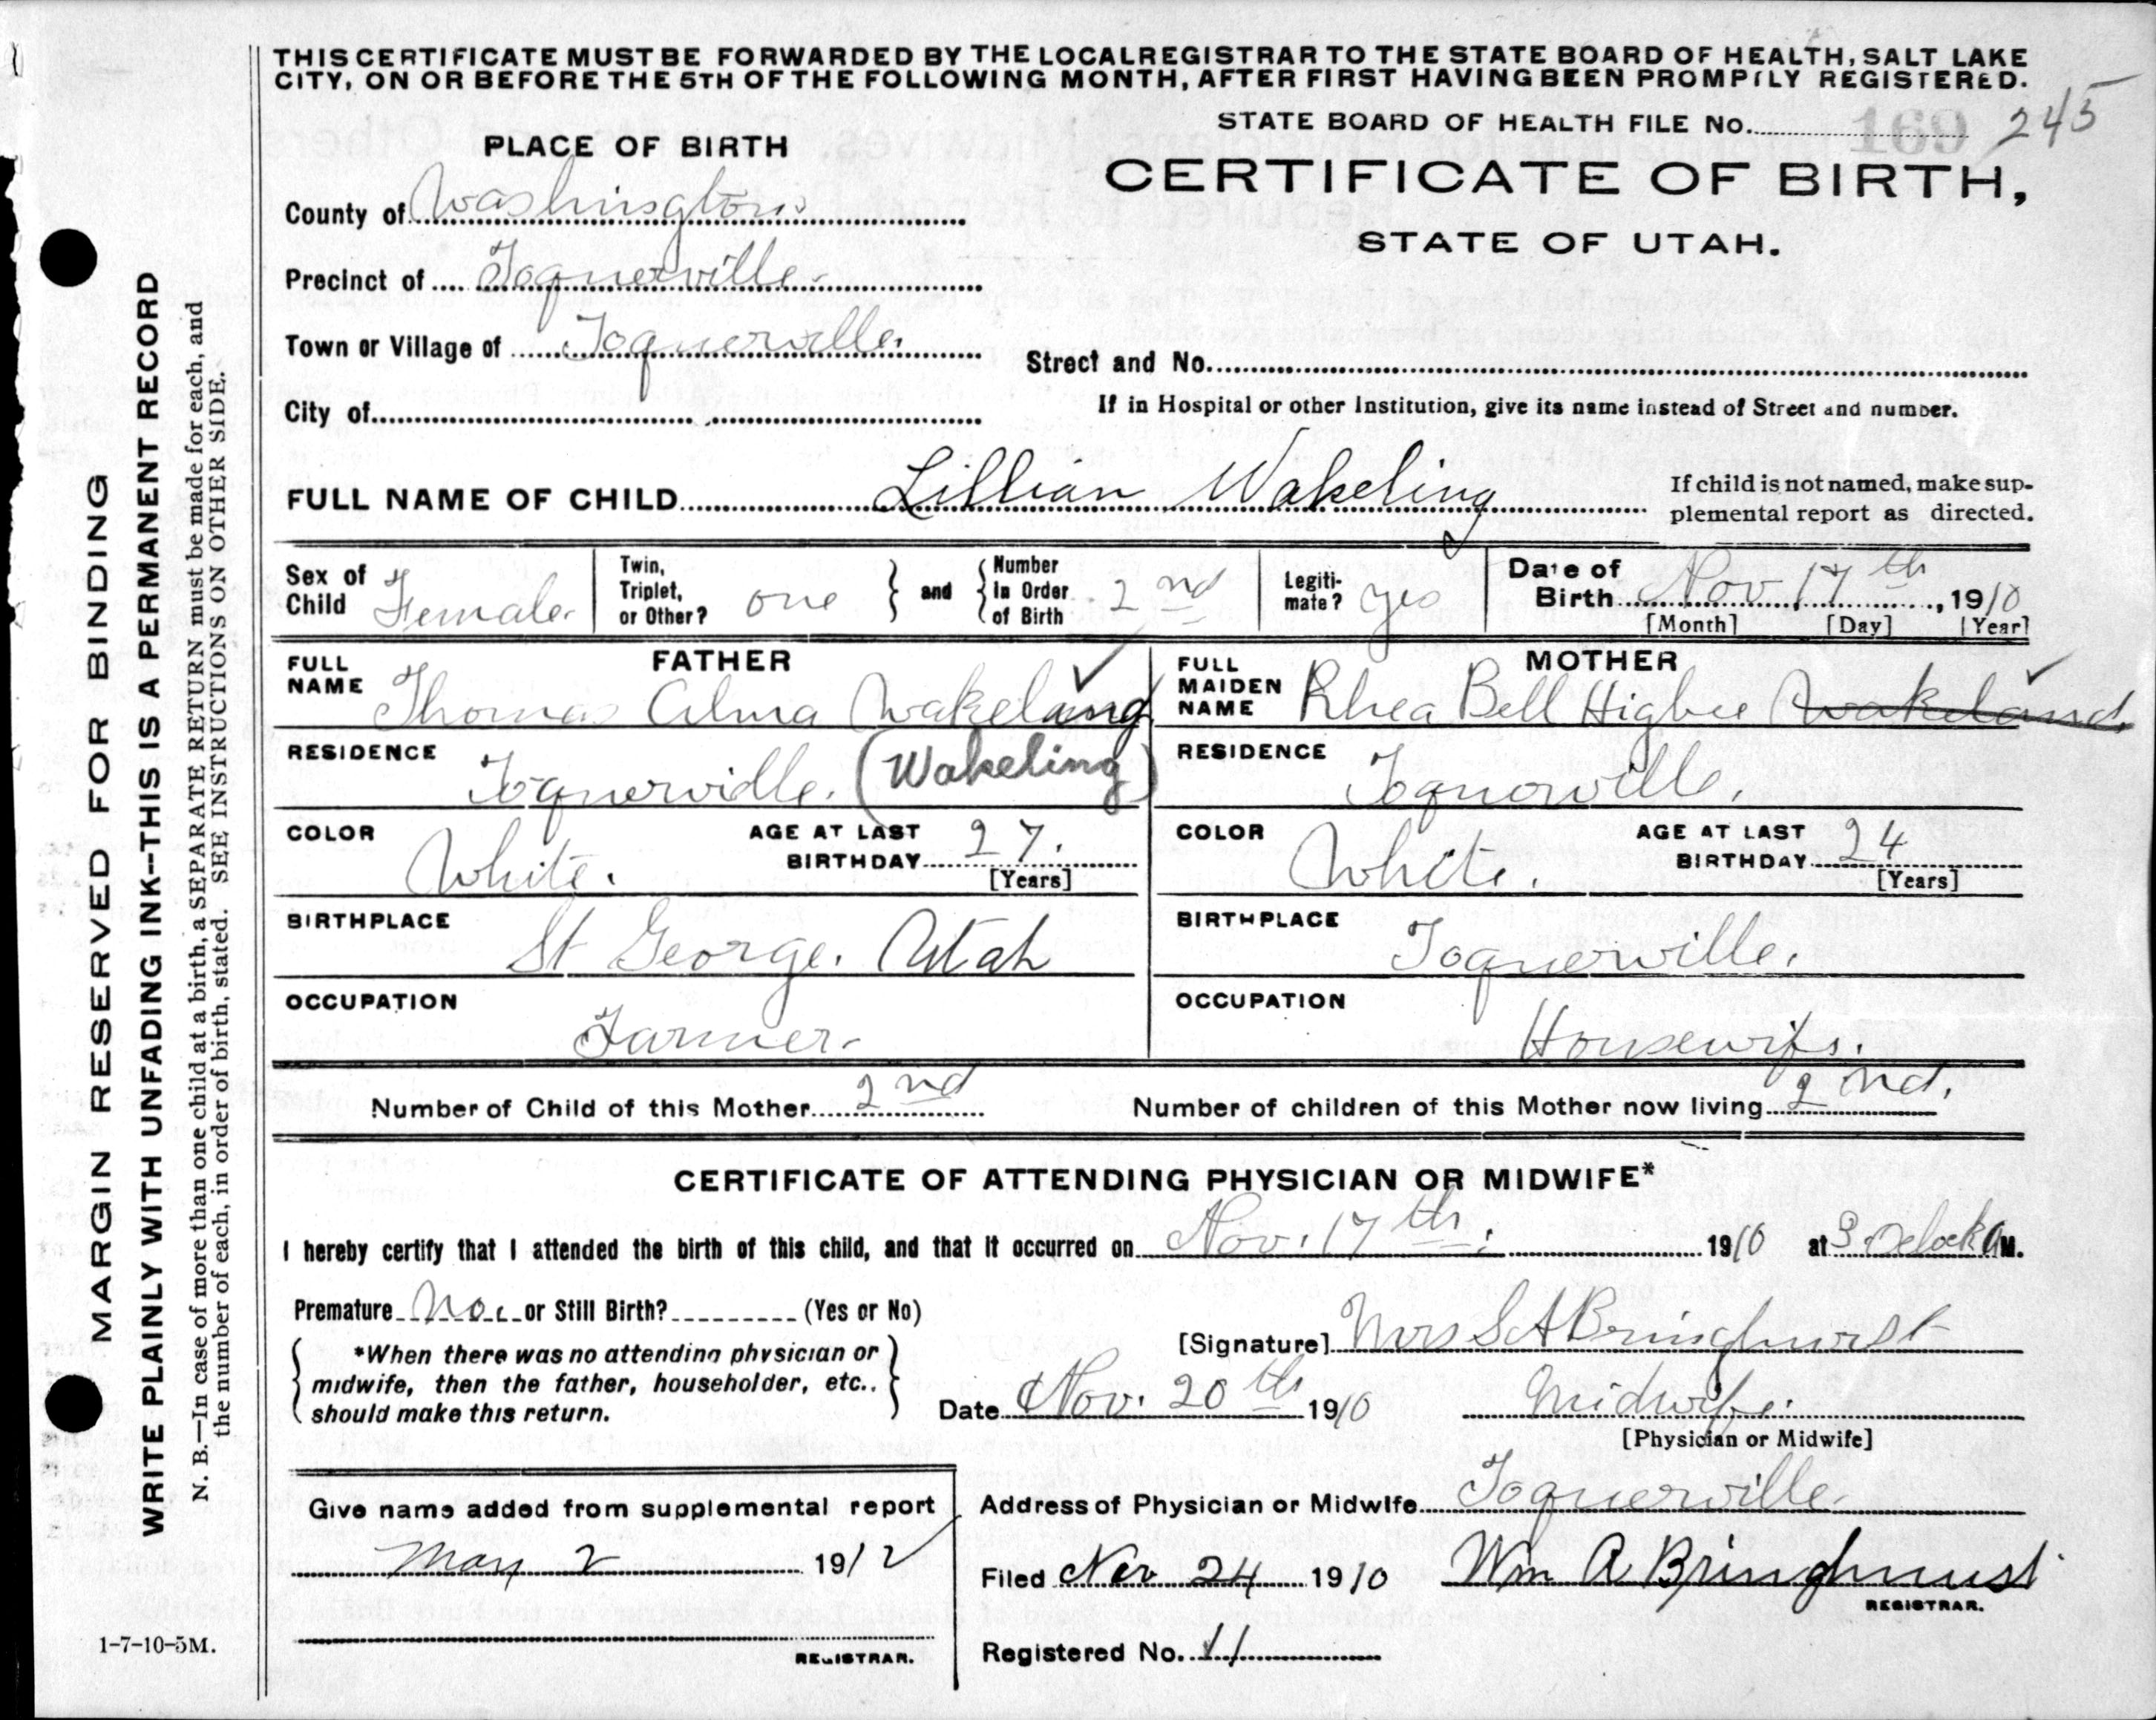 THIS CERTIFICATE MUST BE FORWARDED BY THE LOCAL REGISTRAR TO THE STATE BOARD OF HEALTH, SALT LAKE
CITY, ON OR BEFORE THE 5TH OF THE FOLLOWING MONTH, AFTER FIRST HAVING BEEN PROMPTLY REGISTERED.
STATE BOARD OF HEALTH FILE No. 169 245
PLACE OF BIRTH
CERTIFICATE OF BIRTH,
STATE OF UTAH.
County of Washington
Precinct of Toquerville
Town or Village of Toquerville
Street and No.
City of
If in Hospital or other Institution, give its name instead of Street and number.
FULL NAME OF CHILD Lillian Wakeling
If child is not named, make sup-
plemental report as directed.
Sex of Child Female
Twin, Triplet, or Other? one } and { Number In Order of Birth 2nd
Legiti-mate? yes
Date of Birth Nov 17th, 1910
[Month] [Day] [Year]
FATHER
FULL NAME Thomas Alma Wakeling
RESIDENCE Toquerville. (Wakeling)
COLOR White. AGE AT LAST BIRTHDAY 27. [Years]
BIRTHPLACE St George. Utah
OCCUPATION Farmer
MOTHER
FULL MAIDEN NAME Rhea Bell Higbee Wakeland
RESIDENCE Toquerville.
COLOR White. AGE AT LAST BIRTHDAY 24 [Years]
BIRTHPLACE Toquerville.
OCCUPATION Housewife.
Number of Child of this Mother 2nd Number of children of this Mother now living 2nd.
CERTIFICATE OF ATTENDING PHYSICIAN OR MIDWIFE*
I hereby certify that I attended the birth of this child, and that it occurred on Nov. 17th. 1910 at 3 Oclock A M.
Premature No. or Still Birth? (Yes or No)
*When there was no attending physician or
midwife, then the father, householder, etc.,
should make this return.
[Signature] Mrs S A Bringhurst
Date Nov. 20th 1910 Midwife.
[Physician or Midwife]
Give name added from supplemental report
May 2 1912
REGISTRAR.
Address of Physician or Midwife Toquerville
Filed Nov 24 1910 Wm A Bringhurst
REGISTRAR.
Registered No. 11
MARGIN RESERVED FOR BINDING
WRITE PLAINLY WITH UNFADING INK--THIS IS A PERMANENT RECORD
N. B.—In case of more than one child at a birth, a SEPARATE RETURN must be made for each, and
the number of each, in order of birth, stated. SEE INSTRUCTIONS ON OTHER SIDE.
1-7-10-5M.